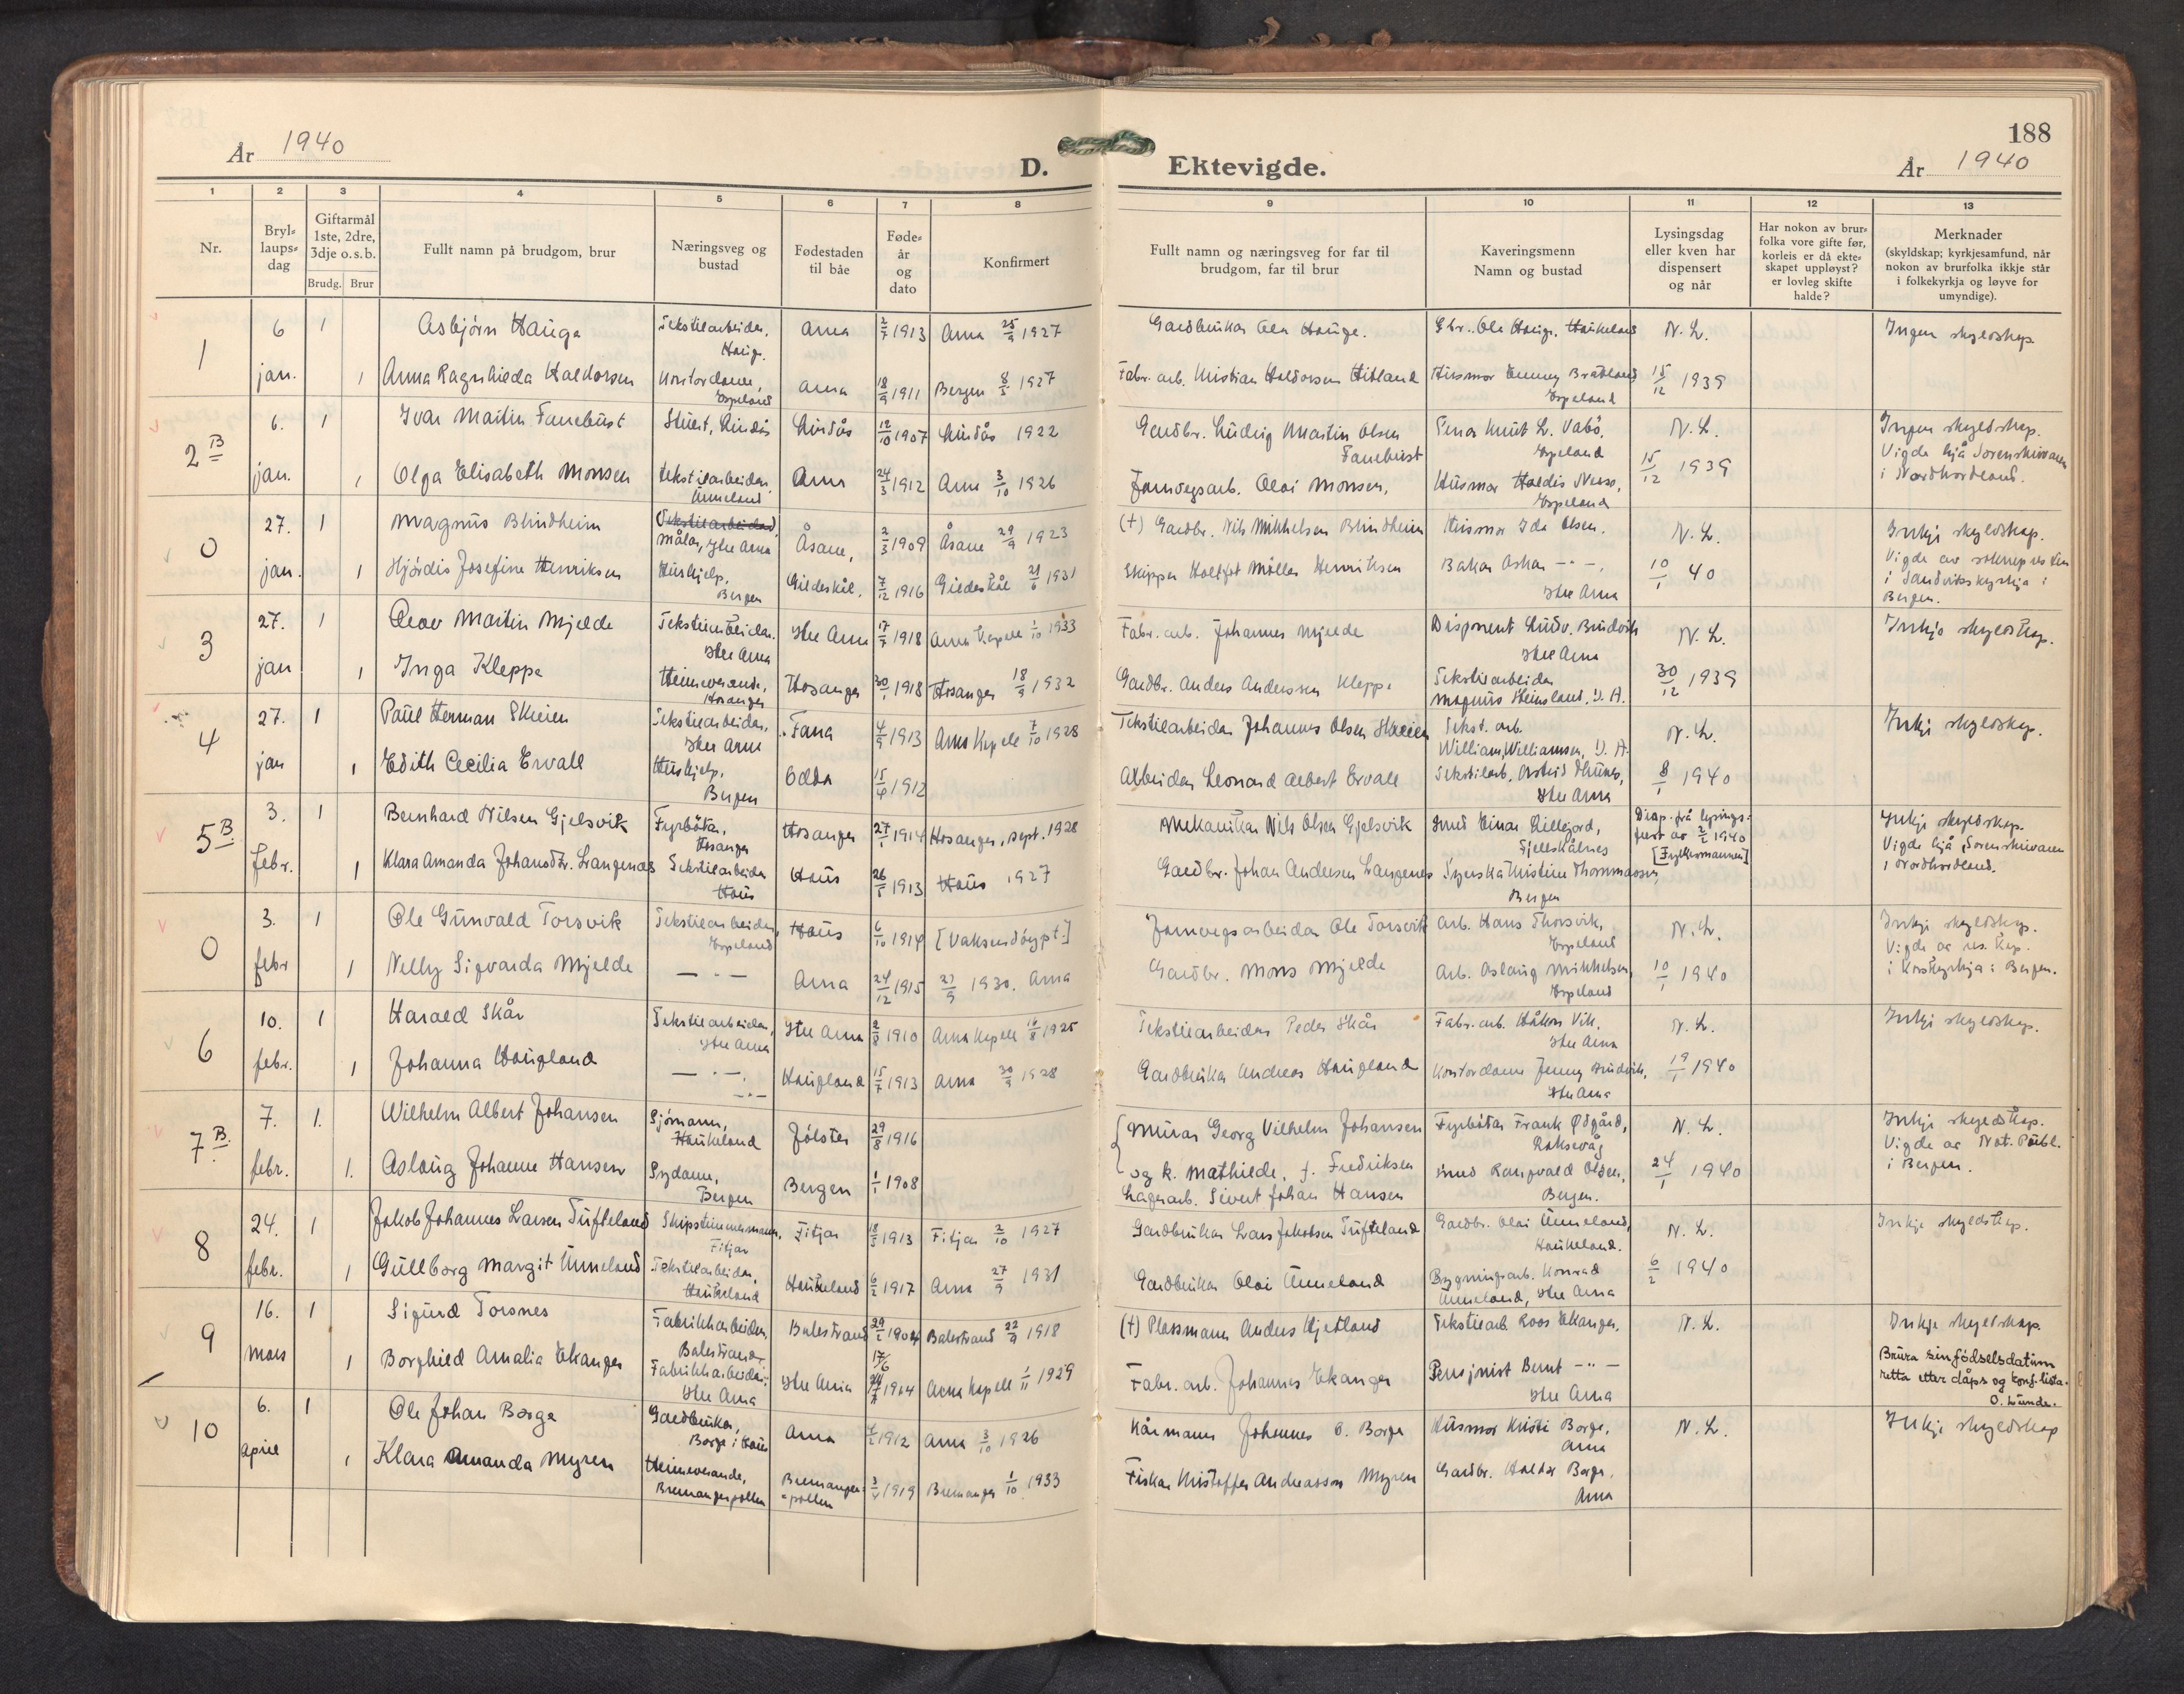 188
År 1940
D.
Ektevigde.
År 1940
1 2 3 4 5 6 7 8
9 10 11 12 13
Nr.
Bryl-
laups-
dag
Giftarmål
1ste, 2dre,
3dje o. s. b.
Brudg. Brur
Fullt namn på brudgom, brur
Næringsveg og
bustad
Fødestaden
til båe
Føde-
år
og
dato
Konfirmert
Fullt namn og næringsveg for far til
brudgom, far til brur
Kaveringsmenn
Namn og bustad
Lysingsdag
eller kven har
dispensert
og når
Har nokon av brur-
folka vore gifte før,
korleis er då ekte-
skapet uppløyst?
er lovleg skifte
halde?
Merknader
(skyldskap; kyrkjesamfund, når
nokon av brurfolka ikkje står
i folkekyrkja og løyve for
umyndige).
1
6 1 Asbjørn Hauga Tekstilarbeidar, Arna 2/7 1913 Arna 25/9 1927 Gardbrukar Ola Hauge. Gbr. Ola Hauge, Haukeland N. L. Ingen skyldskap
Haug.
jan. 1 Anna Ragnhilda Haldorsen Kontordame, Arna 18/9 1911 Bergen 8/5 1927 Fabr. arb. Kristian Haldorsen Hitland Husmor Emmy Brådland 15/12 1939
Espeland Espeland
2 B
6. 1 Ivar Martin Fanebust Stuert, Lindås Lindås 12/10 1907 Lindås 1922 Gardbr. Ludvig Martin Olsen Knut L. Vabø, N. L. Ingen skyldskap.
Fanebust Espeland Vigde hjå Sorenskrivaren
jan. 1 Olga Elisabeth Monsen Tekstilarbeidar, Arna 24/3 1912 Arna 3/10 1926 Jarnvegsarb. Olai Monsen, Husmor Haldis Nesse, 15/12 1939 i Nordhordland.
Unneland Espeland
0
27. 1 Magnus Blindheim Tekstilarbeidar, Åsane, 2/3 1909 Åsane 29/9 1923 (+) Gardbr. Nils Mikkelsen Blindheim Husmor Ida Olsen. N. L. Inkji skyldskap.
målar, Itre Arna Vigde av soknepresten
jan. 1 Hjørdis Josefine Henriksen Hushjelp, Gildeskål. 7/12 1916 Gildeskål 21/6 1931 Skipper Møller Henriksen Bakar Oskar - " -. 10/1 40 i Sandvikskyrkja i
Bergen Itre Arna Bergen.
3
27. 1 Olav Martin Mjelde Tekstilarbeidar. Itre Arna 17/7 1918 Arna Kapell 1/10 1933 Fabr. arb. Johannes Mjelde Disponent Ludv. Brudvik N. L. Inkje skyldskap.
Itre Arna Itre Arna
jan 1 Inga Kleppe Heimeverande, Hosanger 30/1 1918 Hosanger 18/9 1932 Gardbr. Anders Anderssen Kleppe Tekstilarbeidar 30/12 1939
Hosanger Magnus Heimsland, Y. A.
4
27. 1 Paul Herman Skeien Tekstilarbeidar, Fana 4/9 1913 Arna Kapell 7/10 1928 Tekstilarbeidar Johannes Olsen Skeien Tekst. arb. N. L. Inkji skyldskap.
Itre Arna William Williamsen, Y. A.
jan 1 Edith Cecilia Ervall Hushjelp, Odda 15/4 1912 Arbeidar Leonard Albert Ervall Tekstilarb. Astrid 8/1 1940
Bergen Itre Arna
5 B.
3. 1 Bernhard Nilsen Gjelsvik Fyrbøtar, Hosanger 27/1 1914 Hosanger, sept. 1928 Mekanikar Nils Olsen Gjelsvik Smed Einar Lillejord, Disp. frå lysings- Inkji skyldskap.
Hosanger Fjellskålnes frist av 2/2 1940 Vigde hjå Sorenskrivaren
febr. 1 Klara Amanda Johansdtr. Langenes Tekstilarbeidar Haus 26/5 1913 Haus 1927 Gardbr. Johan Andersen Langenes Syerska Kristine Thommassen, [Fylkesmannen] i Nordhordland.
Haus Bergen
0
3. 1 Ole Gunvald Torsvik Tekstilarbeidar, Haus 6/10 1914 [Vaksendøypt.] Jarnvegsarbeidar Ole Torsvik Arb. Hans Thorsvik, N. L. Inkji skyldskap.
Espeland Espeland Vigde av res. kap.
febr 1 Nelly Sigvarda Mjelde — " — Arna 24/12 1915 27/9 1930. Arna Gardbr. Mons Mjelde Arb. Aslaug Mikkelsen, 10/1 1940 i Korskyrkja i Bergen.
Espeland
6
10. 1 Harald Skår Tekstilarbeidar, Itre Arna 2/8 1910 Arna Kapell 16/8 1925 Tekstilarbeidar Peder Skår Fabr. arb. Håkon Vik, N. L. Inkji skyldskap.
Itre Arna Itre Arna
febr. 1 Johanna Haugland — " —. Haugland 15/7 1913 Arna 30/9 1928 Gardbrukar Andreas Haugland Kontordame Jenny Brudvik, 19/1 1940
— " — Itre Arna
7 B.
7. 1. Wilhelm Albert Johansen Sjømann, Jølster 29/8 1916 Murar Georg Vilhelm Johansen Fyrbøtar Frank Ødgård, N. L. Inkji skyldskap.
Haukeland og k. Mathilde, f. Fredriksen Raknevåg Vigde av Not. Publ.
febr. 1. Aslaug Johanne Hansen Sydame, Bergen 1/1 1908 Lagerarb. Sivert Johan Hansen Smed Rangvald Olsen, 24/1 1940 i Bergen.
Bergen Bergen.
8
24. 1 Jakob Johannes Larsen Tufteland Skipstimmermann, Fitjar 18/5 1913 Fitjar 2/10 1927 Gardbrukar Lars Jakobsen Tufteland Gardbr. Olai Unneland, N. L. Inkje skyldskap.
Fitjar Haukeland.
febr. 1 Gullborg Margit Unneland Tekstilarbeidar, Haukeland 6/2 1917 Arna 27/9 1931 Gardbrukar Olai Unneland Bygningsarb. Konrad 6/2 1940
Haukeland Unneland, Itre Arna
9
16. 1 Sigurd Torsnes Fabrikkarbeidar, Balestrand 29/2 1904 Balestrand 22/9 1918 (+) Plassmann Anders Kjetland Tekstilarb. Roos Ekanger, N. L. Inkje skyldskap.
Balestrand
mars 1 Borghild Amalia Ekanger Fabrikkarbeidar, Itre Arna 17/6 1914 Arna Kapell 1/11 1929 Fabr. arb. Johannes Ekanger Pensjonist Bernt - " - Brura sin fødselsdatum
Itre Arna Itre Arna retta etter dåps og konf.lista.
O. Lunde.
10
6. 1 Ole Johan Borge Gardbrukar, Arna 1912 Arna 3/10 1926 Kårmann Johannes O. Borge Husmor Kristi Borge, N. L. Inkji skyldskap
Borge i Haus Arna
april 1 Klara Amanda Myren Heimeverande, Bremanger- 3/4 1919 Bremanger 1/10 1933 Fiskar Kristoffer Andreasson Myren Gardbr. Haldor Borge,
Bremangerpollen =pollen Arna